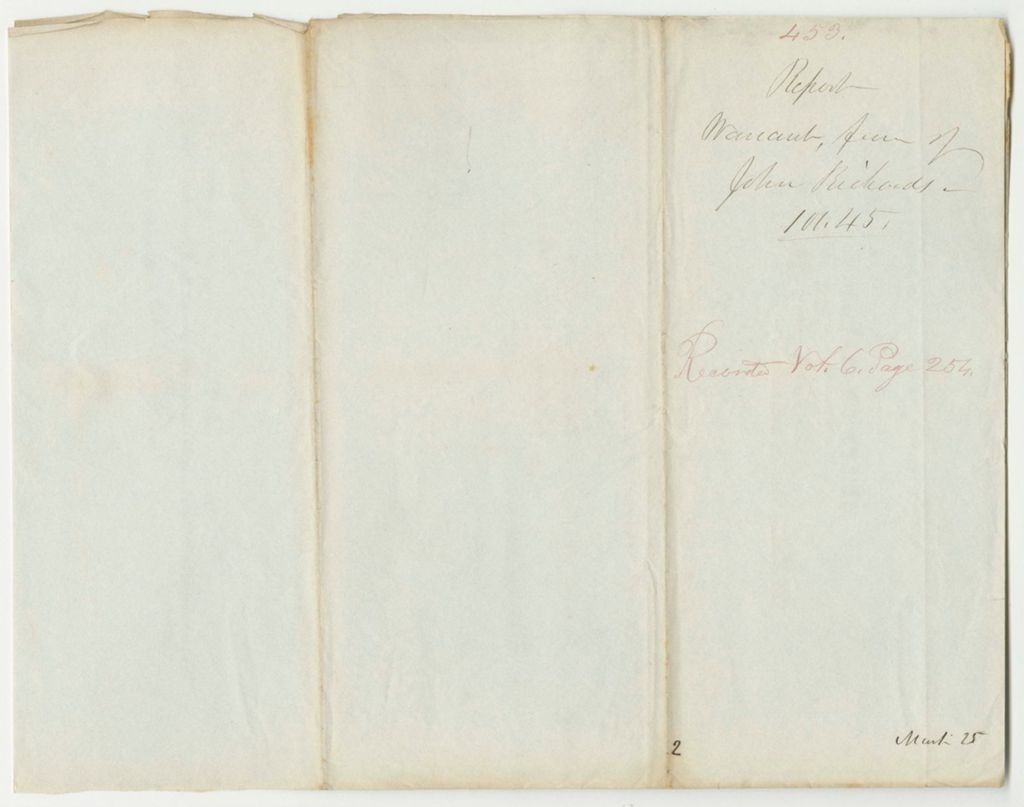 453.
Report
Warrant, favor of
John Richards.
101.45.
Recorded Vol. 6. Page 254.
2
March 25